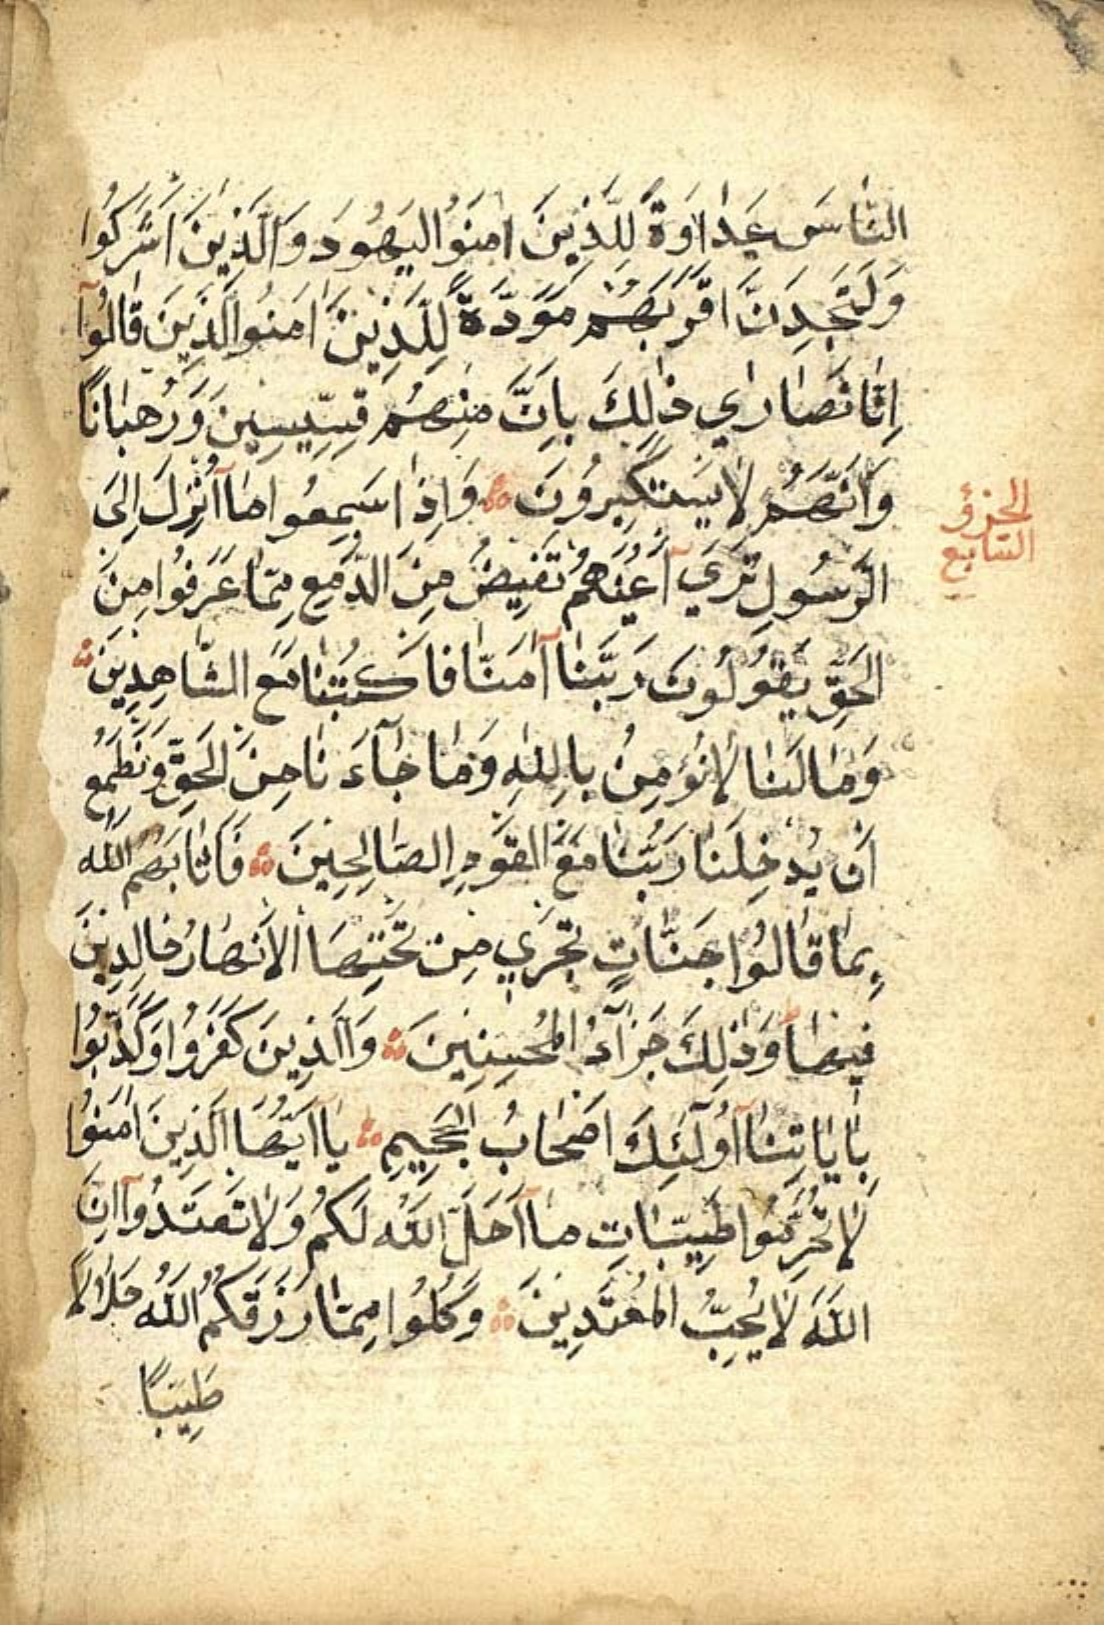 النَّاسَ عَدَاوَةً لِلَّذِينَ امَنُوا اليَهُودَ وَالَّذِينَ اَشْرَكُوا
وَلَتَجِدَنَّ اَقْرَبَهُمْ مَوَدَّةً لِلَّذِينَ امَنُوا الَّذِينَ قَالُوآ
اِنَّا نَصَارَي ذَالِكَ بِاَنَّ مِنْهُمْ قِسِّيسِينَ وَرُهْبَانًا
وَاَنَّهُمْ لَا يَسْتَكْبِرُونَ وَاِذَا سَمِعُوا مَآ اُنْزِلَ اِلَى
الرَّسُولِ تَرَي آَعْيُنَهُمْ تَفِيضُ مِنَ الدَّمْعِ مِمَّا عَرَفُوا مِنَ
الحَقِّ يَقُولُونَ رَبَّنَا آمَنَّا فَاكْتُبْنَا مَعَ الشَّاهِدِينَ
وَمَا لَنَا لَا نُؤْمِنُ بِاللَّهِ وَمَا جَآءَ نَا مِنَ الحَقِّ وَنَطْمَعُ
اَنْ يُدْخِلَنَا رَبُّنَا مَعَ القَوْمِ الصَّالِحِينَ فَاَثَابَهُمُ اللَّهُ
بِمَا قَالُوا جَنَّاتٍ تَجْرِي مِنْ تَحْتِهَا الاَنْهَارُ خَالِدِينَ
فِيهَا وَذَلِكَ جَزَآءُ المُحْسِنِينَ وَالَّذِينَ كَفَرُوا وَكَذَّبُوا
بِاَيَاتِنَآ اُولَئِكَ اَصْحَابُ الجَحِيمِ يَآ اَيُّهَا الَّذِينَ امَنُوا
لَا تُحَرِّمُوا طَيِّبَاتِ مَآ اَحَلَّ اللَّهُ لَكُمْ وَلَا تَعْتَدُوآ اِنَّ
اللَّهَ لَا يُحِبُّ المُعْتَدِينَ وَكُلُوا مِمَّا رَزَقَكُمُ اللَّهُ حَلَالًا
طَيِّبًا
الجزؤ
السابع